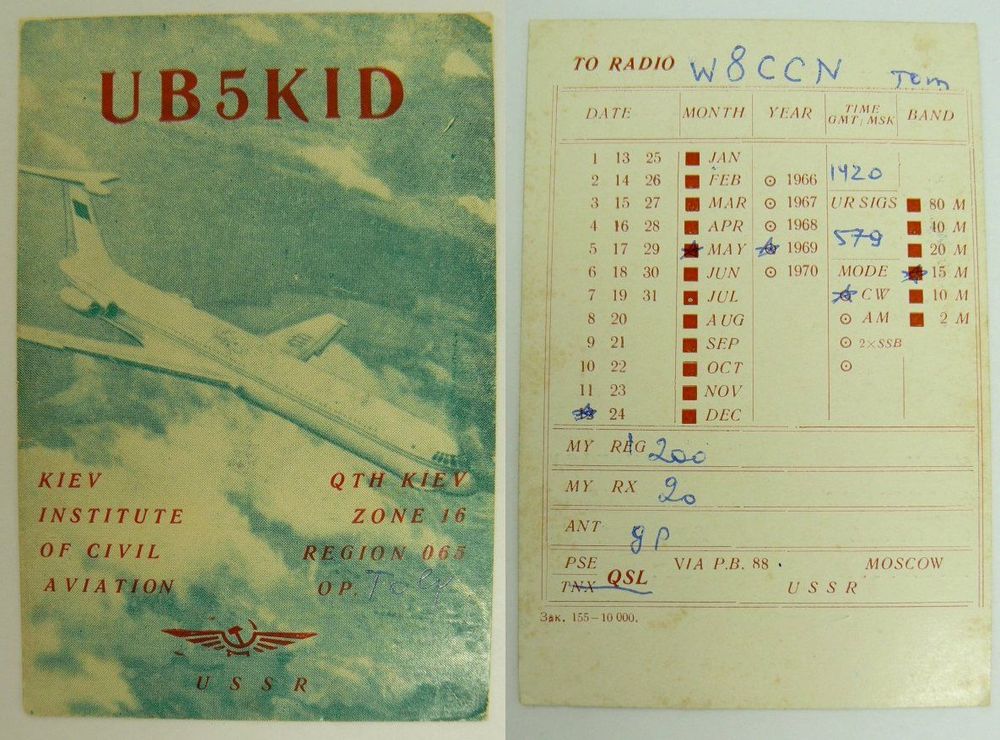 UB5KID
KIEV
INSTITUTE
OF CIVIL
AVIATION
QTH KIEV
ZONE 16
REGION 065
OP.
USSR
TO RADIO W8CCN Tom
DATE MONTH YEAR TIME GMT/MSK BAND
1 13 25 JAN
2 14 26 FEB 1966 1420
3 15 27 MAR 1967 UR SIGS 80 M
4 16 28 APR 1968 40 M
5 17 29 MAY 1969 579 20 M
6 18 30 JUN 1970 MODE 15 M
7 19 31 JUL CW 10 M
8 20 AUG AM 2 M
9 21 SEP 2×SSB
10 22 OCT
11 23 NOV
24 DEC
MY REG 200
MY RX 20
ANT gp
PSE QSL VIA P.B. 88. MOSCOW
TNX USSR
Зак. 155—10 000.